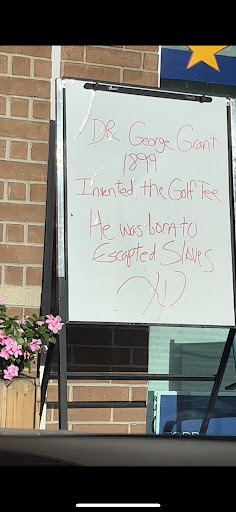 DR. George Grant
1899
Invented the Golf Tee
He was born to
Escapted Slaves